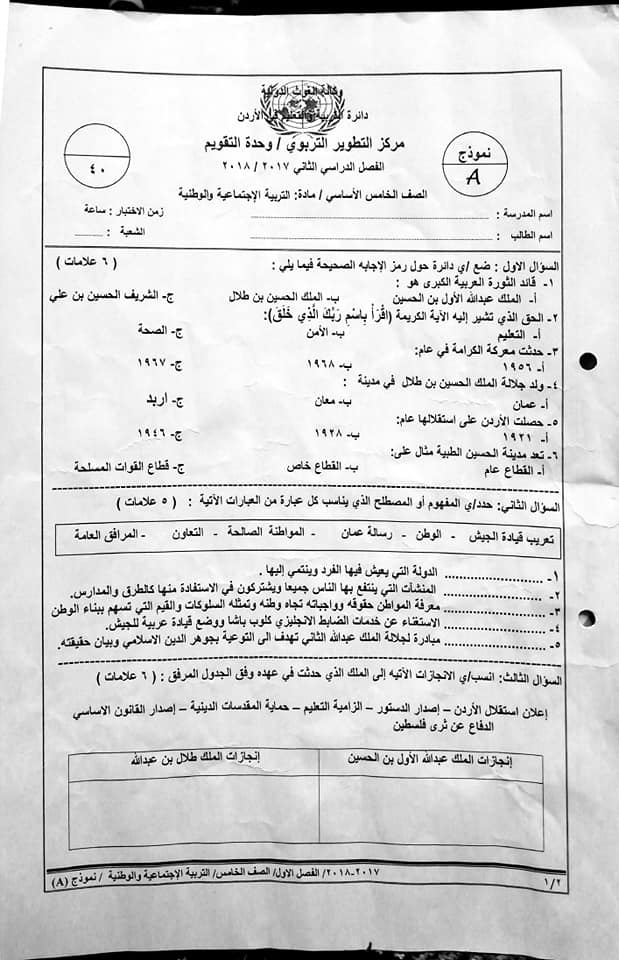 وكالة الغوث الدولية
دائرة التربية والتعليم في الأردن
مركز التطوير التربوي / وحدة التقويم
الفصل الدراسي الثاني ٢٠١٧ / ٢٠١٨
نموذج
A
٤٠
الصف الخامس الأساسي / مادة: التربية الإجتماعية والوطنية
اسم المدرسة : ........ زمن الاختبار : ساعة
اسم الطالب : ........ الشعبة : ........
السؤال الاول : ضع /ي دائرة حول رمز الإجابه الصحيحة فيما يلي : ( ٦ علامات )
١- قائد الثورة العربية الكبرى هو :
أ- الملك عبدالله الأول بن الحسين ب- الملك الحسين بن طلال ج- الشريف الحسين بن علي
٢- الحق الذي تشير إليه الآية الكريمة (اقْرَأْ بِاسْمِ رَبِّكَ الَّذِي خَلَقَ):
أ- التعليم ب- الأمن ج- الصحة
٣- حدثت معركة الكرامة في عام:
أ- ١٩٥٦ ب- ١٩٦٨ ج- ١٩٦٧
٤- ولد جلالة الملك الحسين بن طلال في مدينة :
أ- عمان ب- معان ج- أربد
٥- حصلت الأردن على استقلالها عام:
أ- ١٩٢١ ب- ١٩٢٨ ج- ١٩٤٦
٦- تعد مدينة الحسين الطبية مثال على:
أ- القطاع عام ب- القطاع خاص ج- قطاع القوات المسلحة
السؤال الثاني: حدد/ي المفهوم أو المصطلح الذي يناسب كل عبارة من العبارات الآتية : ( ٥ علامات )
تعريب قيادة الجيش - الوطن - رسالة عمان - المواطنة الصالحة - التعاون - المرافق العامة
١- ........ الدولة التي يعيش فيها الفرد وينتمي إليها .
٢- ........ المنشآت التي ينتفع بها الناس جميعا ويشتركون في الاستفادة منها كالطرق والمدارس.
٣- ........ معرفة المواطن حقوقه وواجباته تجاه وطنه وتمثله السلوكات والقيم التي تسهم ببناء الوطن
٤- ........ الاستغناء عن خدمات الضابط الانجليزي كلوب باشا ووضع قيادة عربية للجيش.
٥- ........ مبادرة لجلالة الملك عبدالله الثاني تهدف الى التوعية بجوهر الدين الاسلامي وبيان حقيقته.
السؤال الثالث: انسب/ي الانجازات الأتيه إلى الملك الذي حدثت في عهده وفق الجدول المرفق : ( ٦ علامات )
إعلان استقلال الأردن – إصدار الدستور – الزامية التعليم – حماية المقدسات الدينية – إصدار القانون الاساسي
الدفاع عن ثرى فلسطين
إنجازات الملك عبدالله الأول بن الحسين إنجازات الملك طلال بن عبدالله
٢٠١٧-٢٠١٨/ الفصل الاول/ الصف الخامس/ التربية الإجتماعية والوطنية / نموذج (A)
١/٢